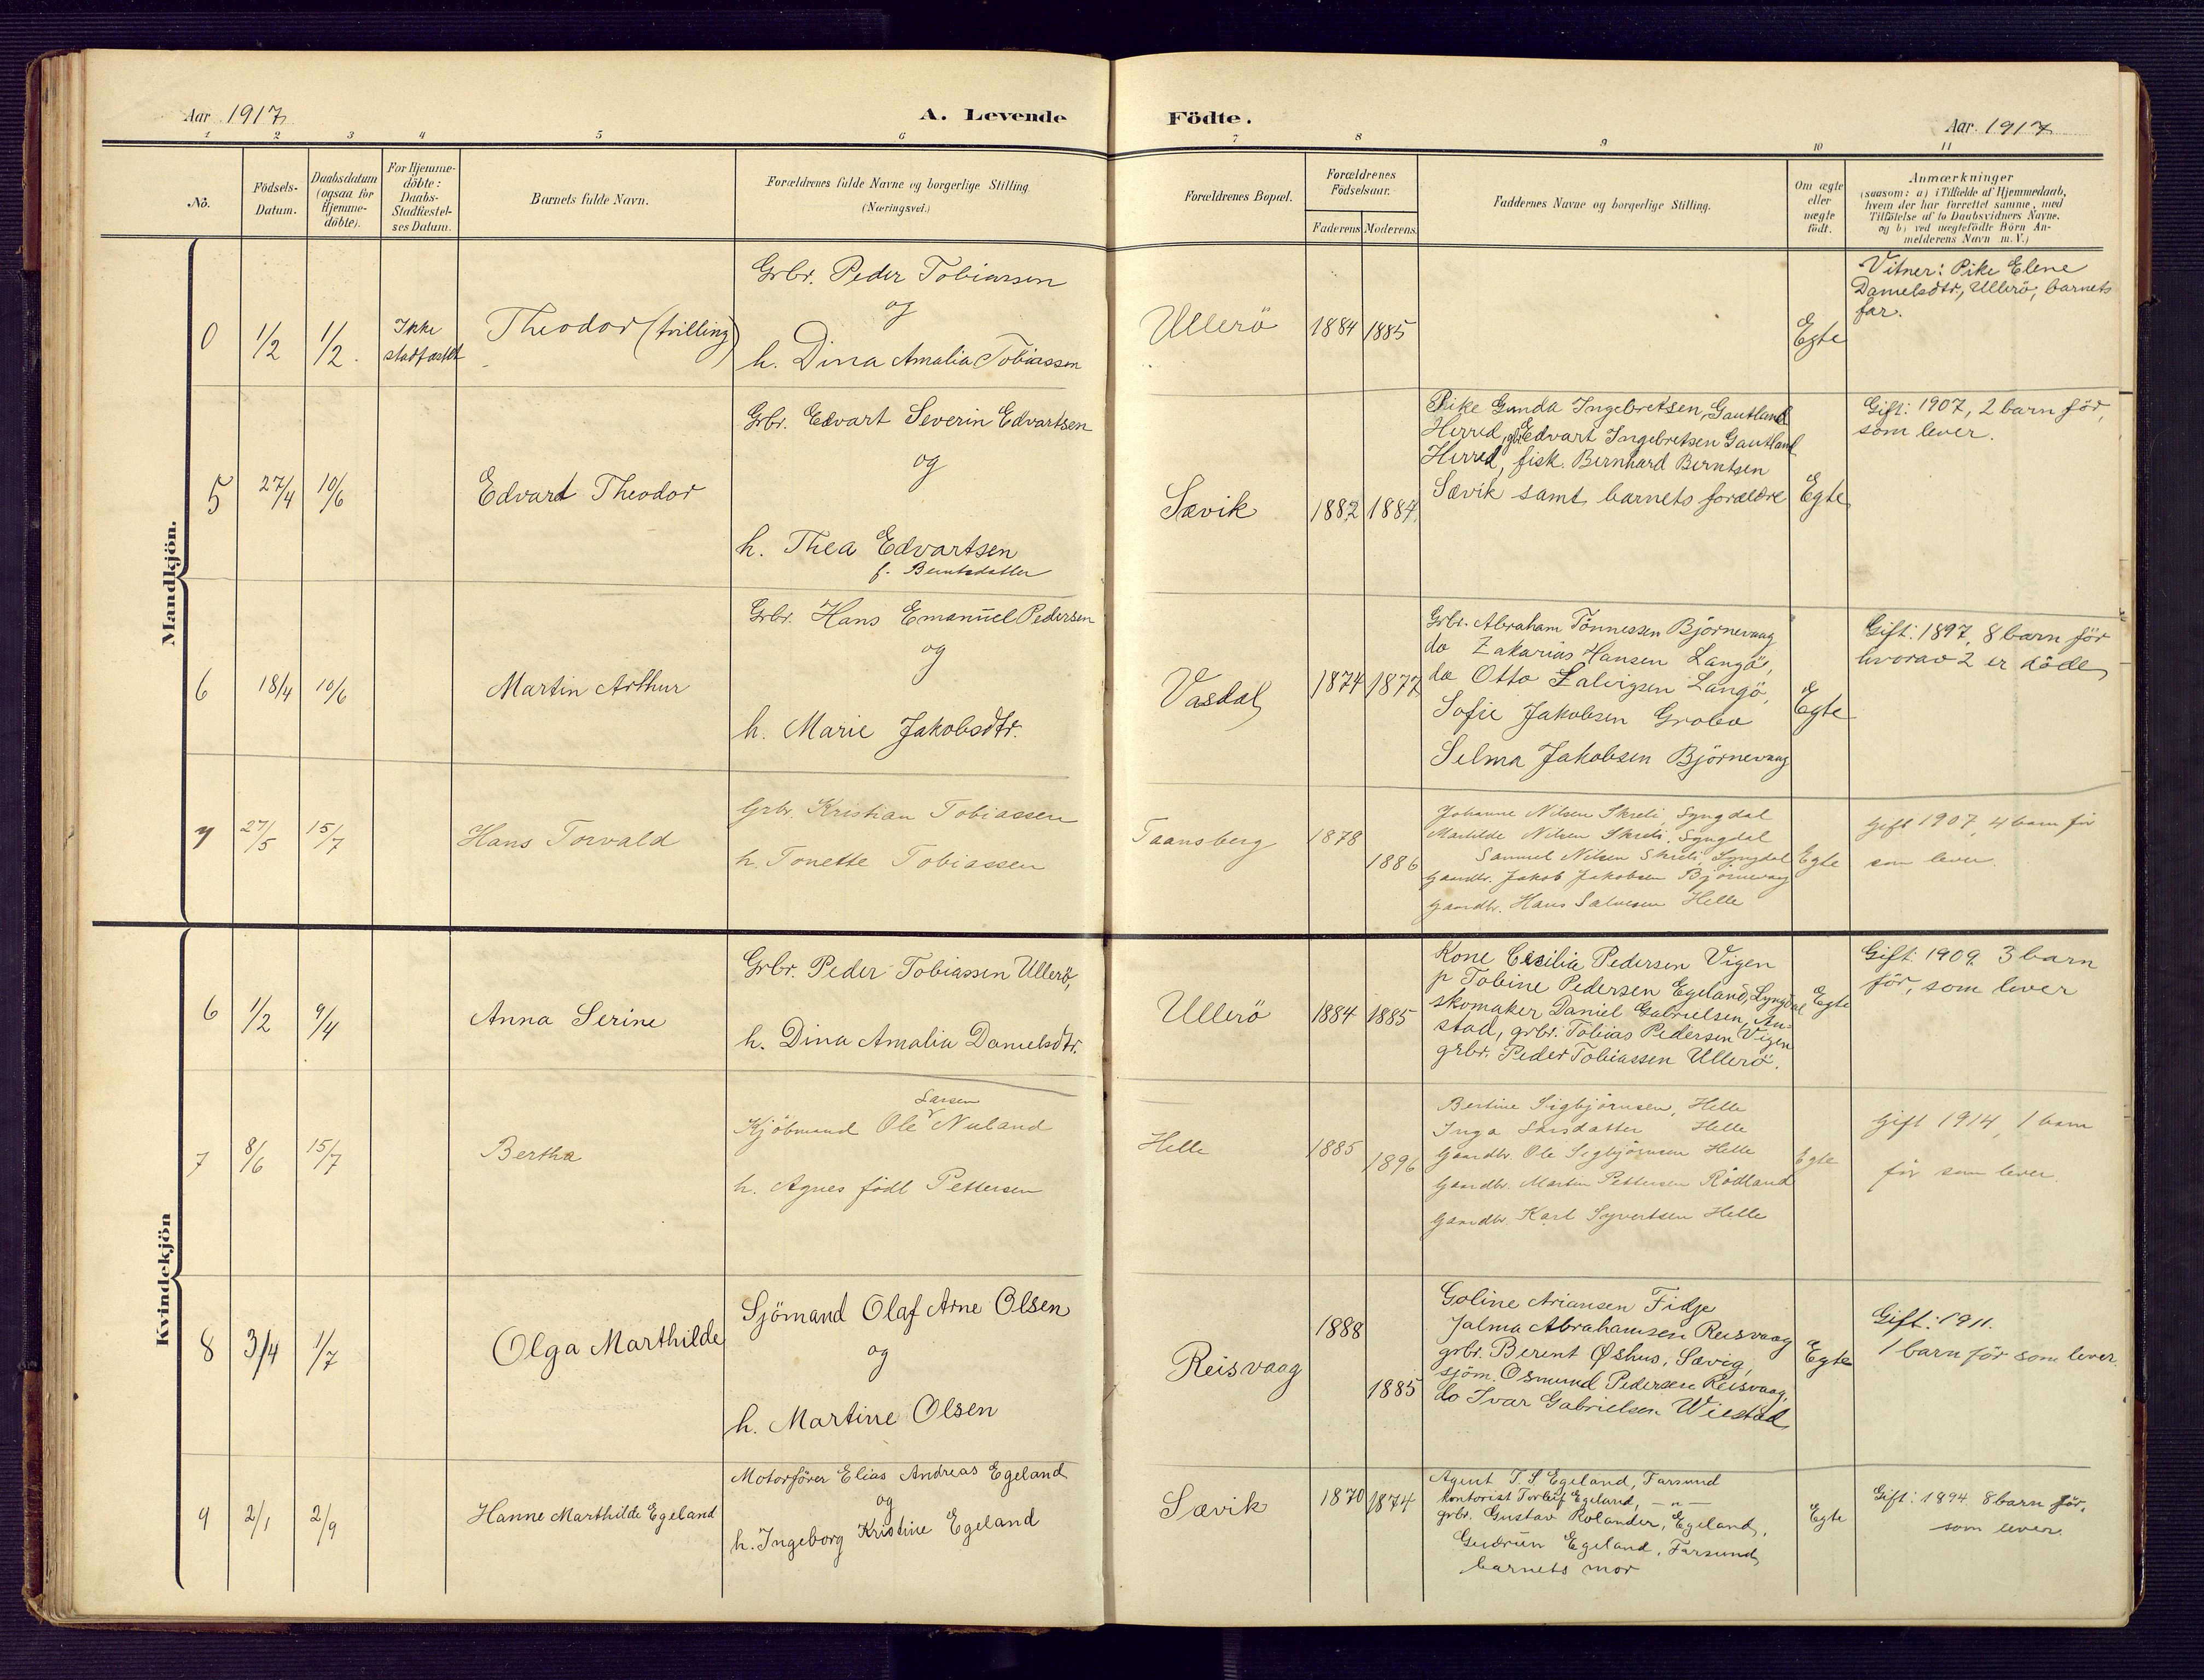 Aar 1917
A. Levende
Födte.
Aar 1917
1 2 3 4 5 6 7 8 9 10 11
No.
Födsels-
Datum.
Daabsdatum
(ogsaa for
Hjemme-
döbte).
For Hjemme-
döbte:
Daabs-
Stadfæstel-
ses Datum.
Barnets fulde Navn.
Forældrenes fulde Navne og borgerlige Stilling.
(Næringsvei.)
Forældrenes Bopæl.
Forældrenes
Födselsaar.
Faderens Moderens
Faddernes Navne og borgerlige Stilling.
Om ægte
eller
uægte
födt.
Anmærkninger
(saasom: a) i Tilfælde af Hjemmedaab,
hvem der har forrettet samme, med
Tilföielse af to Daabsvidners Navne.
og b) ved uægtefödte Börn An-
melderens Navn m. V.)
Mandkjön.
0
1/2
1/2.
Ikke
stadfæstet
Theodor (trilling)
Grbr. Peder Tobiassen
og
h. Dina Amalia Tobiassen
Ullerö
1884
1885
Egte
Vitner: Pike Elene
Danielsdtr, Ullerö, barnets
far.
5
27/4
10/6
Edvard Theodor
Grbr. Edvart Severin Edvartsen
og
h. Thea Edvartsen
f. Berntsdatter
Sævik
1882
1884
Pike Gunda Ingebretsen, Gautland
Herred, gbr Edvart Ingebretsen Gautland
Herred, fisk. Bernhard Berntsen
Sævik samt barnets forældre
Egte
Gift: 1907, 2 barn för,
som lever.
6
18/4
10/6
Martin Arthur
Grbr. Hans Emanuel Pedersen
og
h. Marie Jakobsdtr.
Vasdal
1874
1877
Grbr. Abraham Tönnessen Björnevaag
do Zakarias Hansen Langö,
do Otto Salvigsen Langö,
Sofie Jakobsen Grobo
Selma Jakobsen Björnevaag
Egte
Gift: 1897, 8 barn för
hvorav 2 er döde
7
27/5
15/7
Hans Torvald
Grbr. Kristian Tobiassen
h. Tonette Tobiassen
Taansberg
1878
1886
Johanne Nilsen Skreli, Lyngdal
Mathilde Nilsen Skreli, Lyngdal
Samuel Nilsen Skreli, Lyngdal
Gaardbr. Jakob Jakobsen Björnevaag
Gaardbr. Hans Salvesen Helle
Egte
Gift 1907, 4 barn för
som lever.
Kvindekjön
6
1/2
9/4
Anna Serine
Grbr. Peder Tobiassen Ullerö,
h. Dina Amalia Danielsdtr.
Ullerö
1884
1885
Kone Cecilie Pedersen Vigen
p Tobine Pedersen Egeland, Lyngdal
skomaker Daniel Gabrielsen, Au-
stad, grbr. Tobias Pedersen Vigen
grbr. Peder Tobiassen Ullerö.
Egte
Gift: 1909. 3 barn
för, som lever
7
8/6
15/7
Bertha
Larsen
Kjöbmand Ole Nuland
h. Agnes födt Pettersen
Helle
1885
1896
Bertine Sigbjörnsen, Helle
Inga Larsdatter Helle
Gaardbr. Ole Sigbjörnsen Helle
Gaardbr. Martin Pettersen Rödland
Gaardbr. Karl Syvertsen Helle
Egte
Gift 1914, 1 barn
för som lever.
8
3/4
1/7
Olga Marthilde
Sjömand Olaf Arne Olsen
og
h. Martine Olsen
Reisvaag
1888
1885
Goline Ariansen Fidje
Jalma Abrahamsen Reisvaag
grbr. Berent Øshus, Sævig,
sjöm. Osmund Pedersen Reisvaag,
do Ivar Gabrielsen Wiestad
Egte
Gift: 1911.
1 barn för som lever.
9
2/1
2/9
Hanne Marthilde Egeland
Motorförer Elias Andreas Egeland
og
h. Ingeborg Kristine Egeland
Sævik
1870
1874
Agent T. S Egeland, Farsund
kontorist Torleif Egeland, — " —
grbr. Gustav Rolander, Egeland,
Gudrun Egeland, Farsund,
barnets mor
Egte
Gift: 1894. 8 barn för,
som lever.